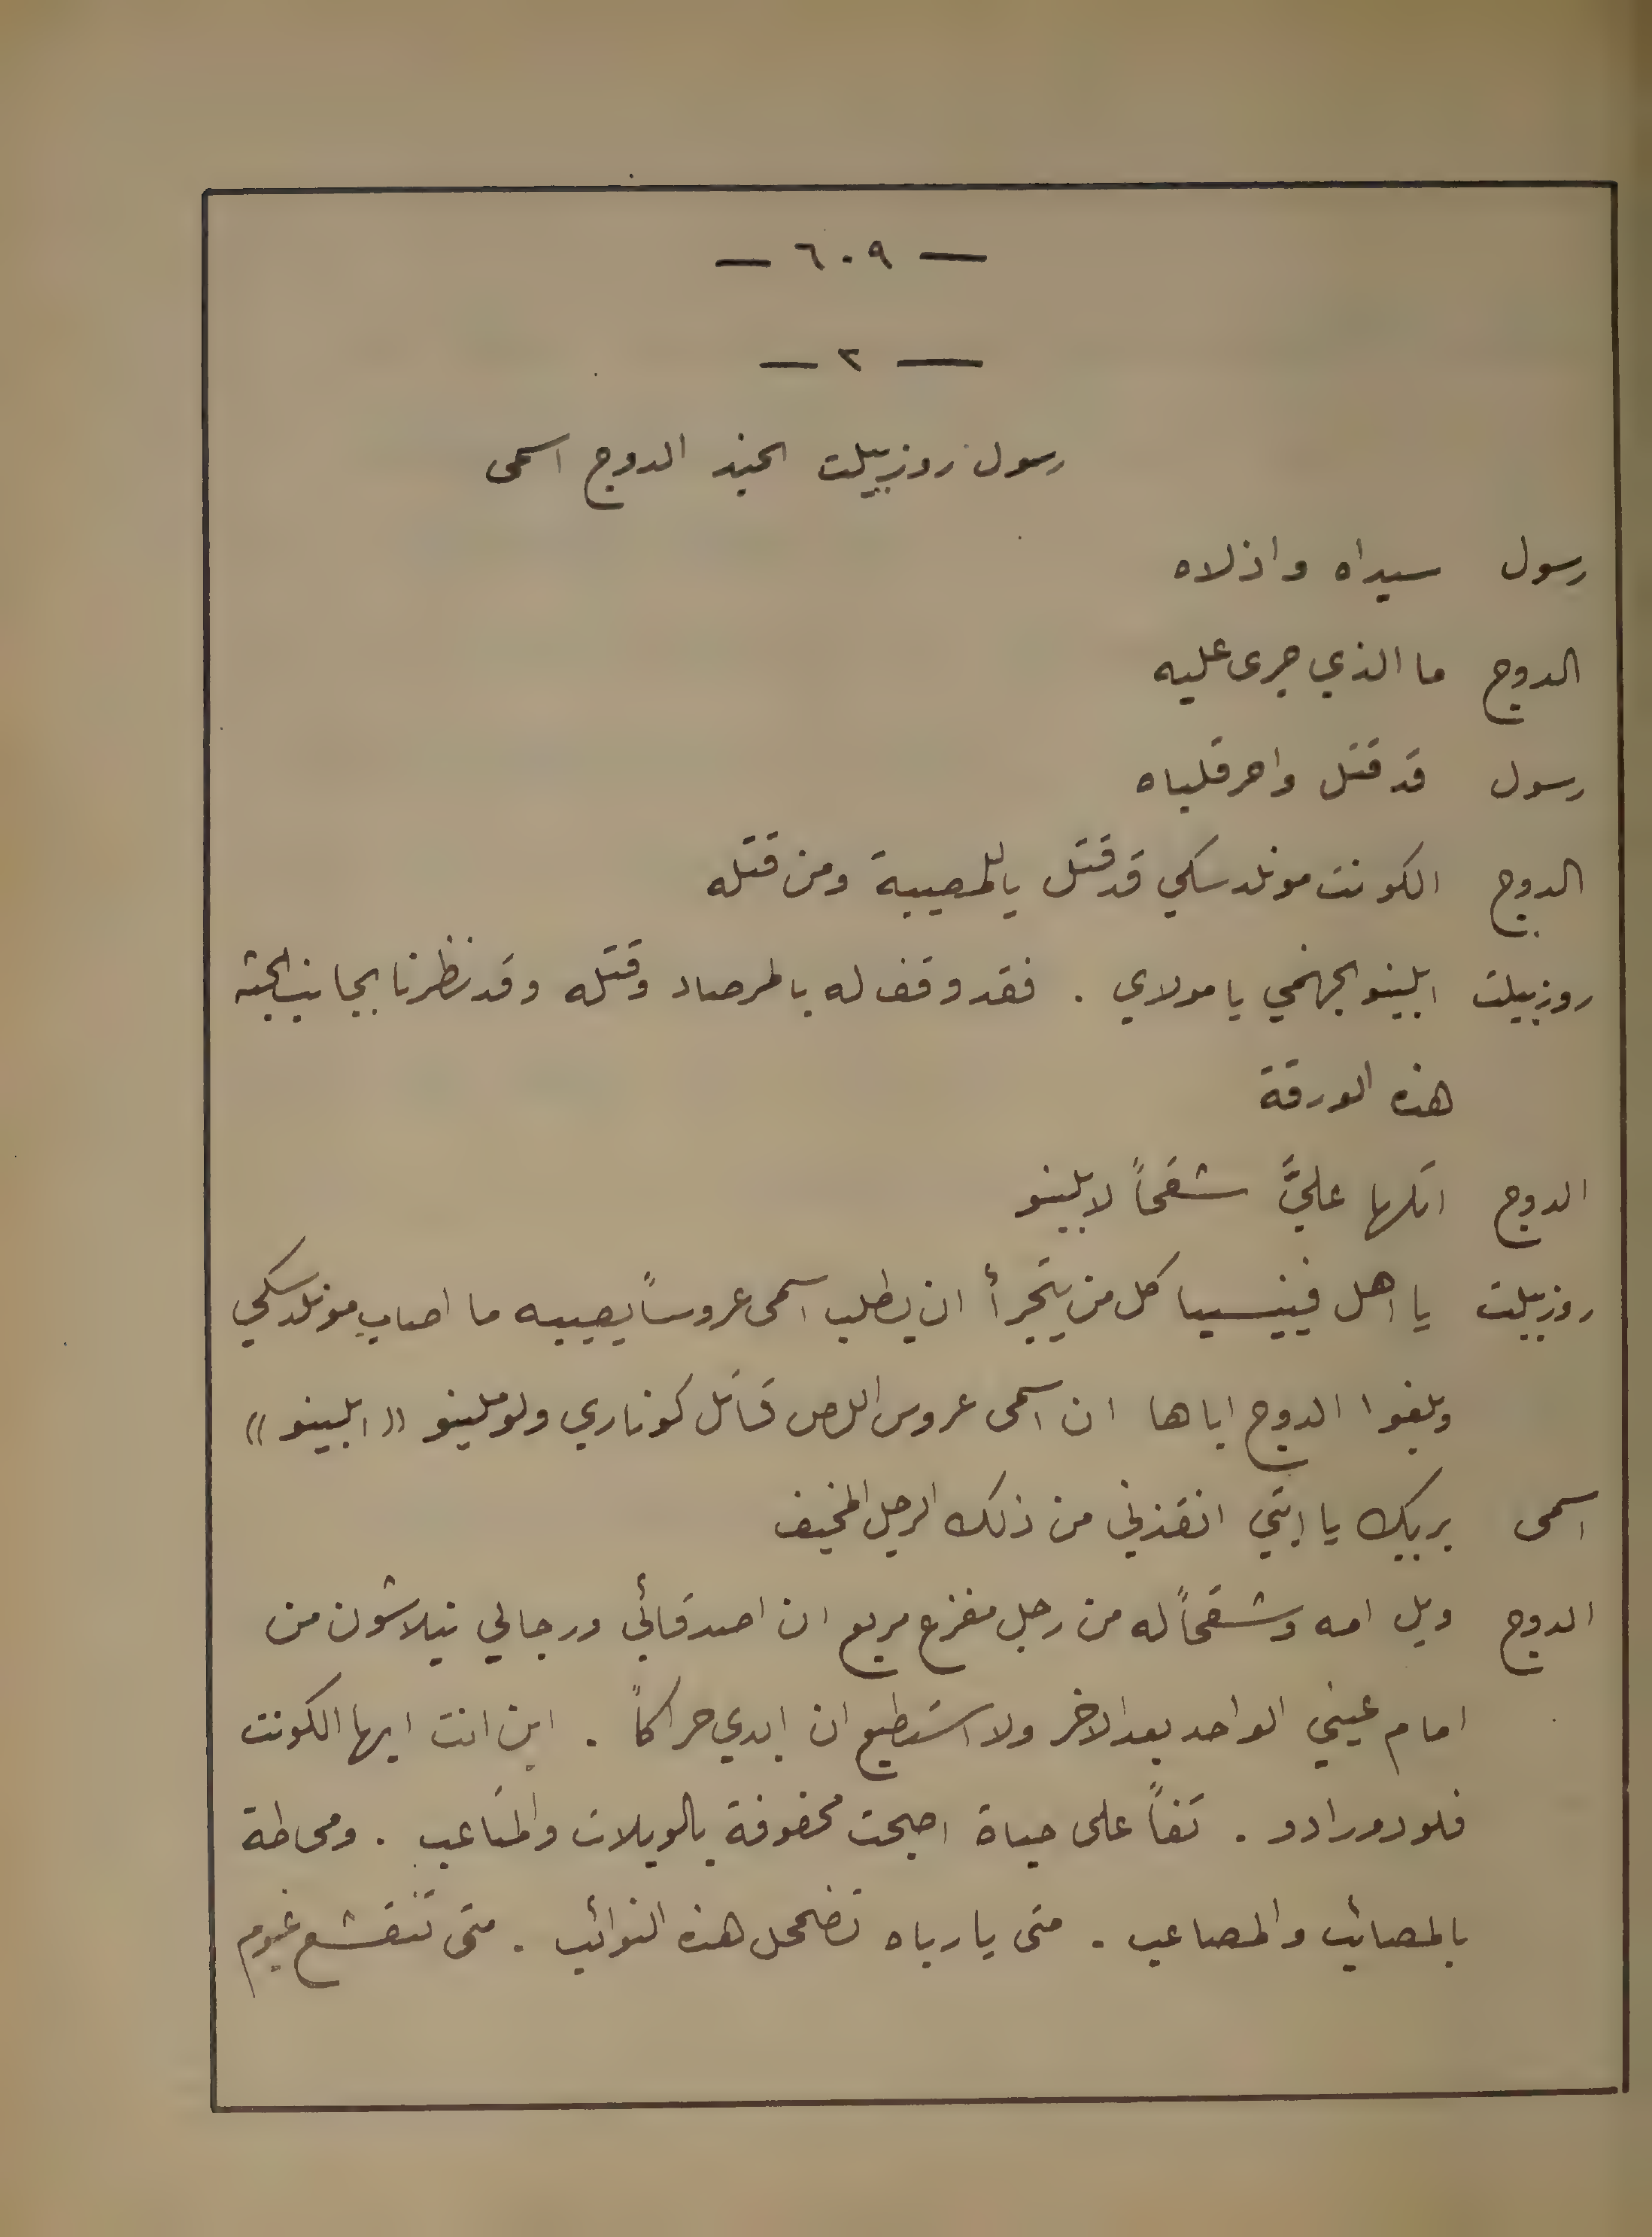 — ٦٠٩ —
— ٢ —
رسول روزبيلت الجند الدوج اسمى
رسول سيداه واذلاه
الدوج ما الذي جرى عليه
رسول قد قتل واحر قلباه
الدوج الكونت مونلدسكي قد قتل ياللمصيبة ومن قتله
روزبيلت ابلينو الجهنمي يا مولاي . فقد وقف له بالمرصاد وقتله وقد نظرنا بجانب الجثة
هذه الورقة
الدوج اتلها عليَّ شقحاً لابلينو
روزبيلت يا اهل فينيسيا كل من يتجرأ ان يطلب اسمى عروساً يصيبه ما اصاب مونلدسكي
وبلغوا الدوج اباها ان اسمى عروس اللص قاتل كوناري ولوملينو « ابلينو »
اسمى بربك يا ابتي انقذني من ذلك الرجل المخيف
الدوج ويل امه وشقحاً له من رجل مفزع مريع ان اصدقائي ورجالي يتلاشون من
امام عيني الواحد بعد الاخر ولا استطيع ان ابدي حراكاً . اين انت ايها الكونت
فلودورادو . تفاً على حياة اصبحت محفوفة بالويلات والمتاعب . ومحاطة
بالمصائب والمصاعب . متى يا رباه تضمحل هذه النوائب . متى تنقشع غيوم